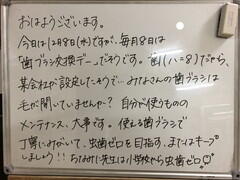 おはようございます。
今日は12月8日(水)ですが、毎月8日は
「歯ブラシ交換デー」だそうです。歯(ハ=8)だから、
某会社が設定したそうで…みなさんの歯ブラシは
毛が開いていませんか？自分が使うものの
メンテナンス、大事です。使える歯ブラシで
丁寧にみがいて、虫歯ゼロを目指す、またはキープ
しましょう!! 先生は小学校から虫歯ゼロ